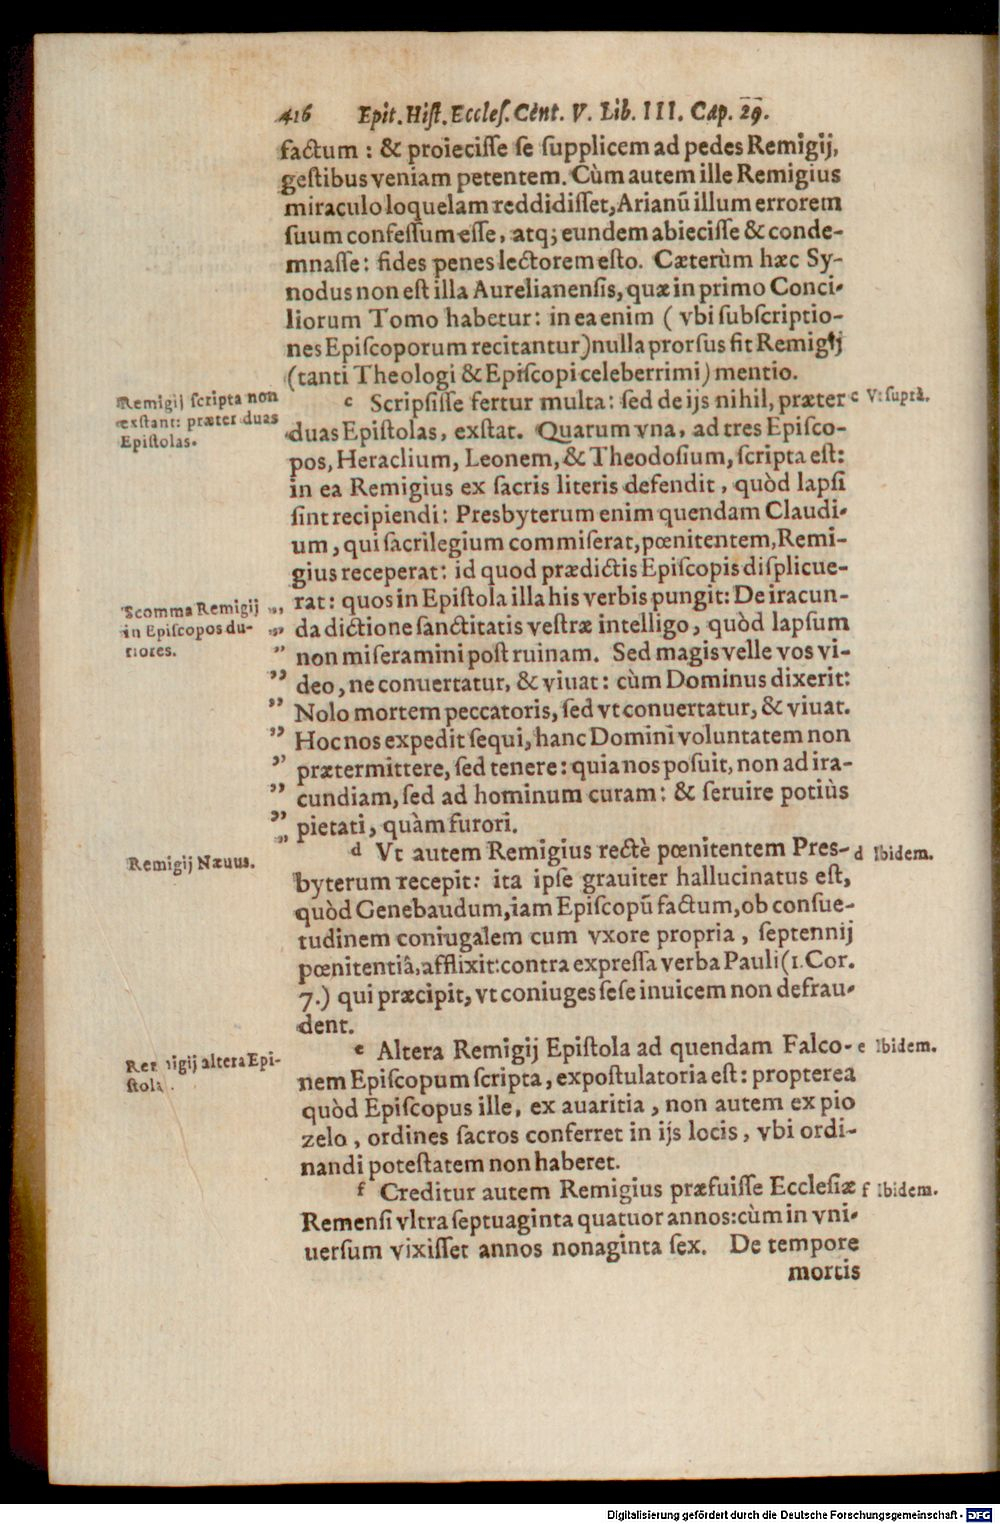 416 Epit. Hiſt. Eccleſ. Cent. V. Lib. III. Cap. 29.
factum : & proieciſſe ſe ſupplicem ad pedes Remigij,
geſtibus veniam petentem. Cùm autem ille Remigius
miraculo loquelam reddidiſſet, Arianū illum errorem
ſuum confeſſum eſſe, atq; eundem abieciſſe & conde-
mnaſſe: fides penes lectorem eſto. Cæterùm hæc Sy-
nodus non eſt illa Aurelianenſis, quæ in primo Conci-
liorum Tomo habetur: in ea enim ( vbi ſubſcriptio-
nes Epiſcoporum recitantur) nulla prorſus fit Remigij
(tanti Theologi & Epiſcopi celeberrimi) mentio.
Remigij ſcripta non
exſtant: præter duas
Epiſtolas.
c Scripſiſſe fertur multa: ſed de ijs nihil, præter
c Vt ſuprà.
duas Epiſtolas, exſtat. Quarum vna, ad tres Epiſco-
pos, Heraclium, Leonem, & Theodoſium, ſcripta eſt:
in ea Remigius ex ſacris literis defendit, quòd lapſi
ſint recipiendi: Presbyterum enim quendam Claudi-
um, qui ſacrilegium commiſerat, pœnitentem, Remi-
gius receperat: id quod prædictis Epiſcopis diſplicue-
Scomma Remigij
in Epiſcopos du-
riores.
„ rat: quos in Epiſtola illa his verbis pungit: De iracun-
„ da dictione ſanctitatis veſtræ intelligo, quòd lapſum
" non miſeramini poſt ruinam. Sed magis velle vos vi-
" deo, ne conuertatur, & viuat: cùm Dominus dixerit:
" Nolo mortem peccatoris, ſed vt conuertatur, & viuat.
" Hoc nos expedit ſequi, hanc Domini voluntatem non
" prætermittere, ſed tenere: quia nos poſuit, non ad ira-
" cundiam, ſed ad hominum curam: & ſeruire potiùs
" pietati, quàm furori.
Remigij Næuus.
d Vt autem Remigius rectè pœnitentem Pres-
d Ibidem.
byterum recepit: ita ipſe grauiter hallucinatus eſt,
quòd Genebaudum, iam Epiſcopū factum, ob conſue-
tudinem coniugalem cum vxore propria, ſeptennij
pœnitentiâ, afflixit: contra expreſſa verba Pauli (1. Cor.
7.) qui præcipit, vt coniuges ſeſe inuicem non defrau-
dent.
Remigij altera Epi-
ſtola.
e Altera Remigij Epiſtola ad quendam Falco-
e Ibidem.
nem Epiſcopum ſcripta, expoſtulatoria eſt: propterea
quòd Epiſcopus ille, ex auaritia, non autem ex pio
zelo, ordines ſacros conferret in ijs locis, vbi ordi-
nandi poteſtatem non haberet.
f Creditur autem Remigius præfuiſſe Eccleſiæ
f Ibidem.
Remenſi vltra ſeptuaginta quatuor annos: cùm in vni-
uerſum vixiſſet annos nonaginta ſex. De tempore
mortis
Digitalisierung gefördert durch die Deutsche Forschungsgemeinschaft - DFG